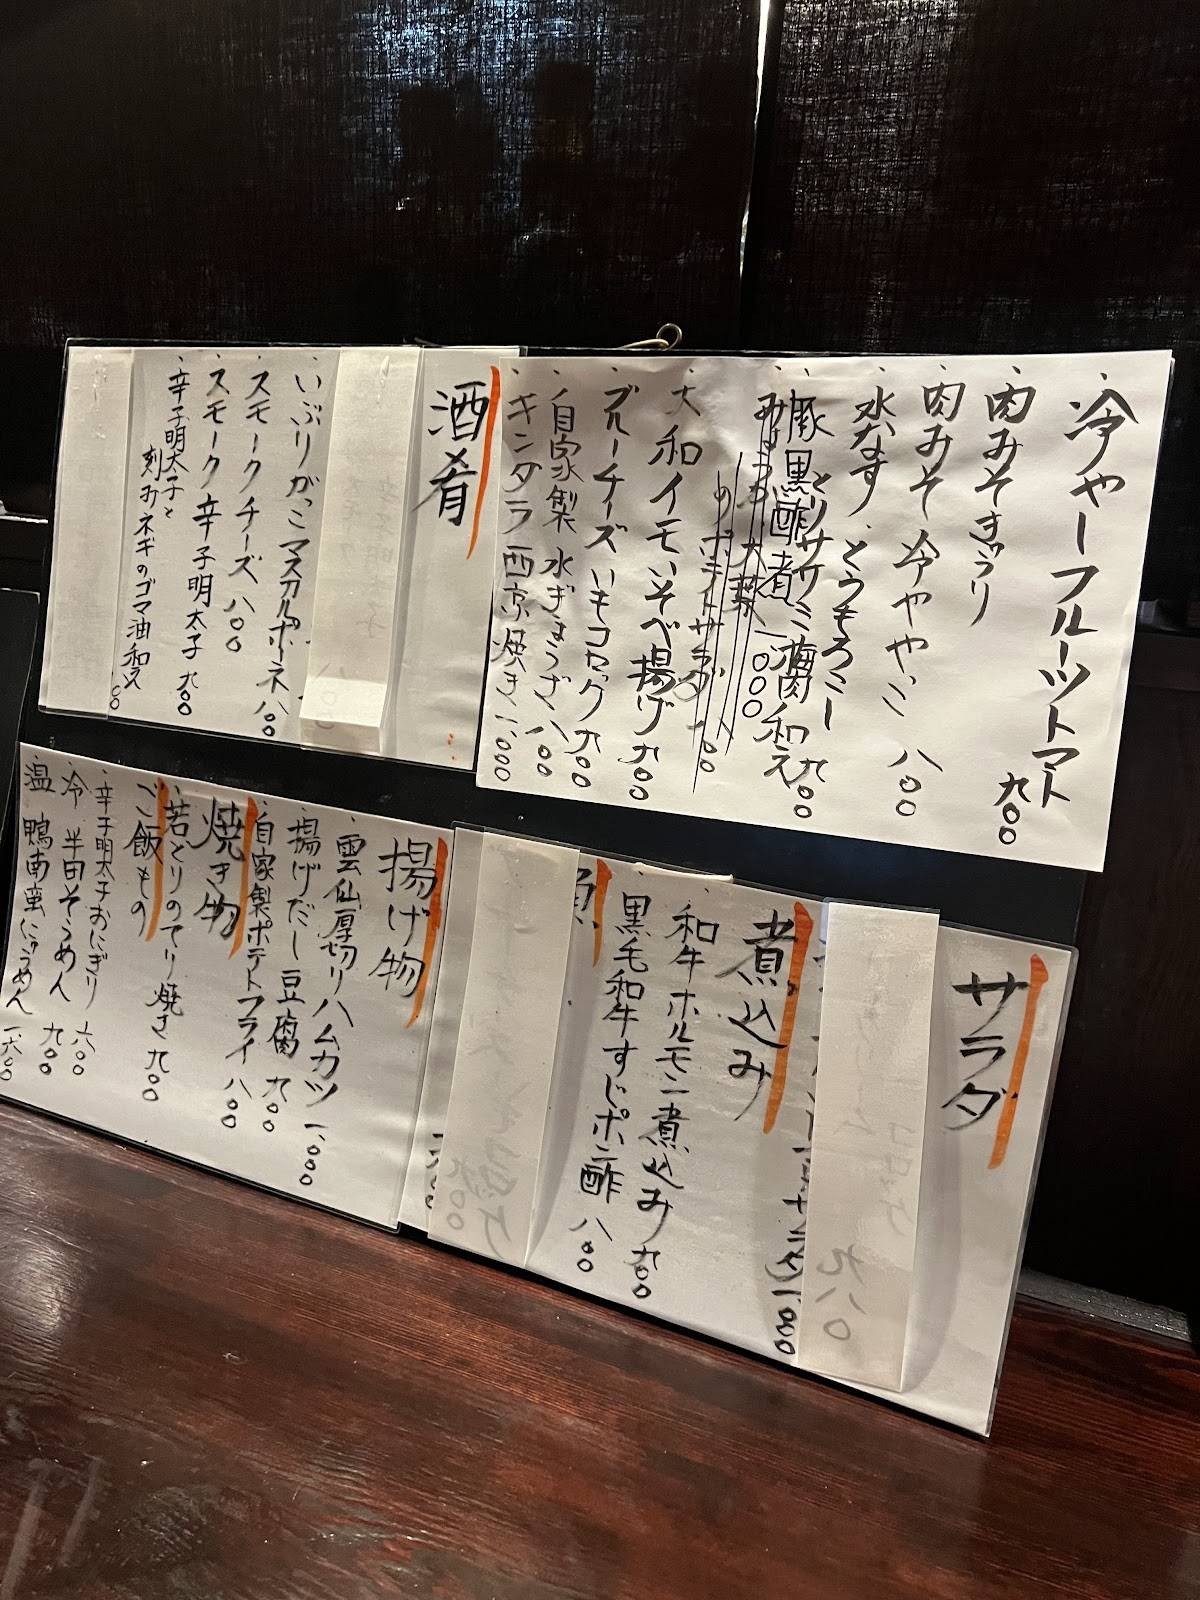 冷やしフルーツトマト 九〇〇
肉みそきゅうり
肉みそ冷ややっこ 八〇〇
水なす、とうもろこし
とりササミ梅肉和え 九〇〇
豚黒酢煮 一、〇〇〇
のポテトサラダ 一、〇〇
大和イモいそべ揚げ 九〇〇
ブルーチーズいもコロッケ 九〇〇
自家製水ぎょうざ 八〇〇
ギンダラ西京焼き 一、〇〇〇
酒肴
いぶりがっこマスカルポーネ 八〇〇
スモークチーズ 八〇〇
スモーク辛子明太子 九〇〇
辛子明太子と
刻みネギのゴマ油和え
サラダ
九八〇
煮込み
和牛ホルモン煮込み 九〇〇
黒毛和牛すじポン酢 八〇〇
揚げ物
雲仙厚切りハムカツ 一、〇〇〇
揚げだし豆腐 九〇〇
自家製ポテトフライ 八〇〇
焼き物
若とりのてり焼き 九〇〇
ご飯もの
辛子明太子おにぎり 六〇〇
冷 半田そうめん 九〇〇
温 鴨南蛮にゅうめん 一、六〇〇